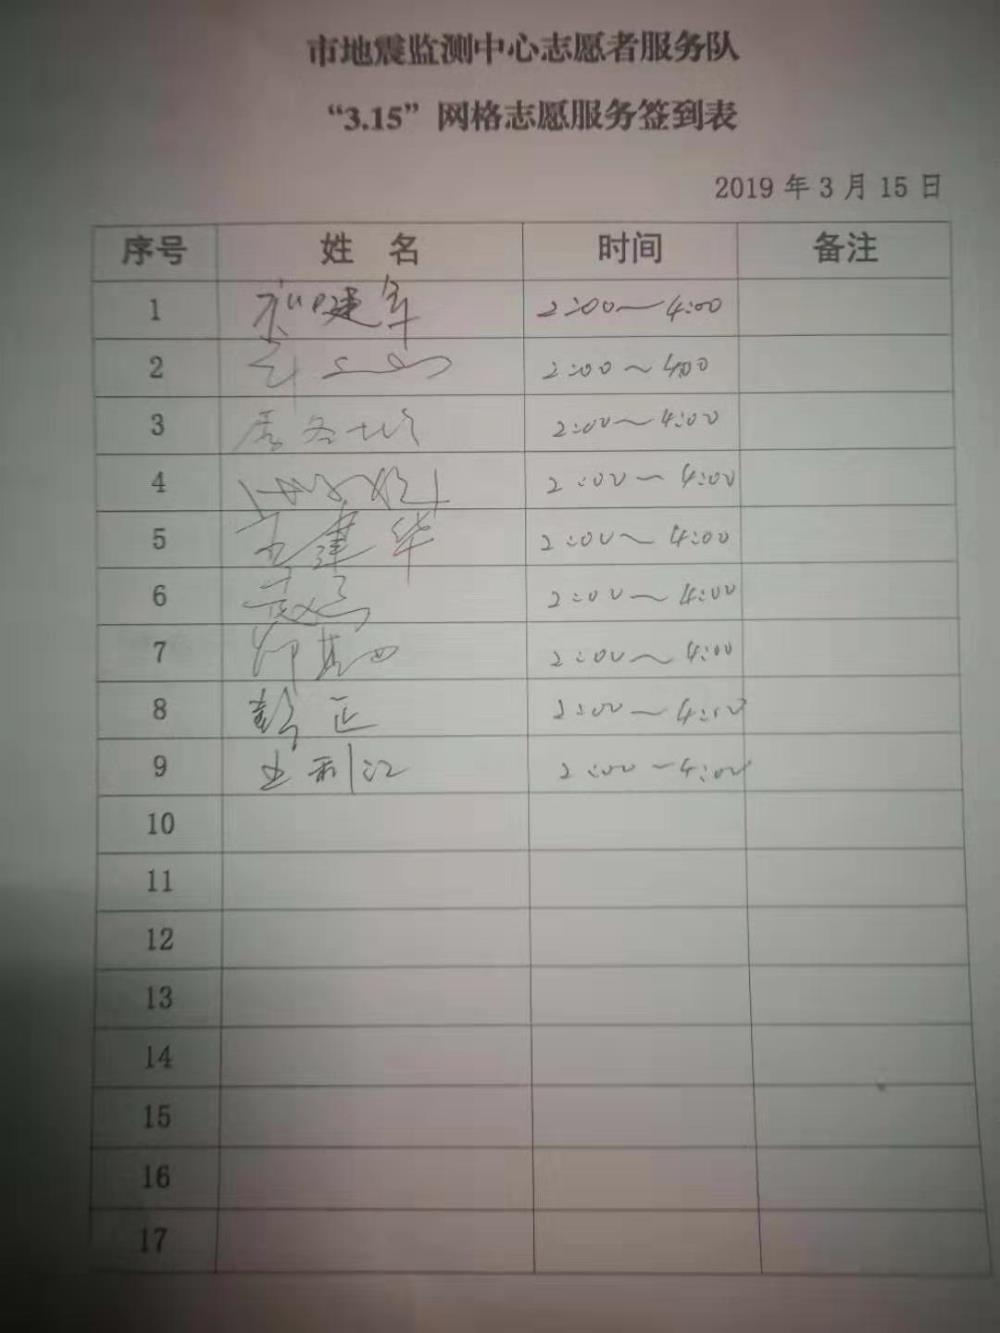 市地震监测中心志愿者服务队
“3.15”网格志愿服务签到表
2019 年 3 月 15 日
序号 姓 名 时间 备注
1 建军 2:00～4:00
2 2:00～4:00
3 2:00～4:00
4 2:00～4:00
5 建华 2:00～4:00
6 2:00～4:00
7 2:00～4:00
8 彭正 2:00～4:00
9 王利江 2:00～4:00
10
11
12
13
14
15
16
17